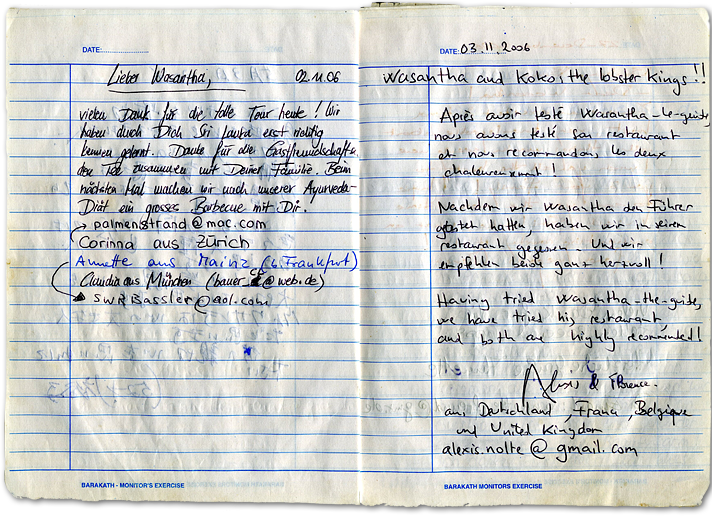 DATE:
Lieber Wasantha, 02.11.06
vielen Dank für die tolle Tour heute! Wir
haben durch Dich Sri Lanka erst richtig
kennen gelernt. Danke für die Gastfreundschaft &
den Tee zusammen mit Deiner Familie. Beim
nächsten Mal machen wir nach unserer Ayurveda-
Diät ein grosses Barbecue mit Dir.
palmenstrand@mac.com
Corinna aus Zürich
Annette aus Mainz (b. Frankfurt)
Claudia aus München (bauer @web.de)
SWRBassler@aol.com
BARAKATH - MONITOR'S EXERCISE
DATE: 03.11.2006
Wasantha and Koko, the lobster Kings!!
Après avoir testé Wasantha-le-guide,
nous avons testé son restaurant
et nous recommandons les deux
chaleureusement!
Nachdem wir Wasantha den Führer
getestet hatten, haben wir in seinem
restaurant gegessen. Und wir
empfehlen beide ganz herzvoll!
Having tried Wasantha-the-guide,
we have tried his restaurant,
and both are highly recommended!
Alexis & Florence.
aus Deutschland, France, Belgique
und United Kingdom
alexis.nolte@gmail.com
BARAKATH MONITORS EXERCISE